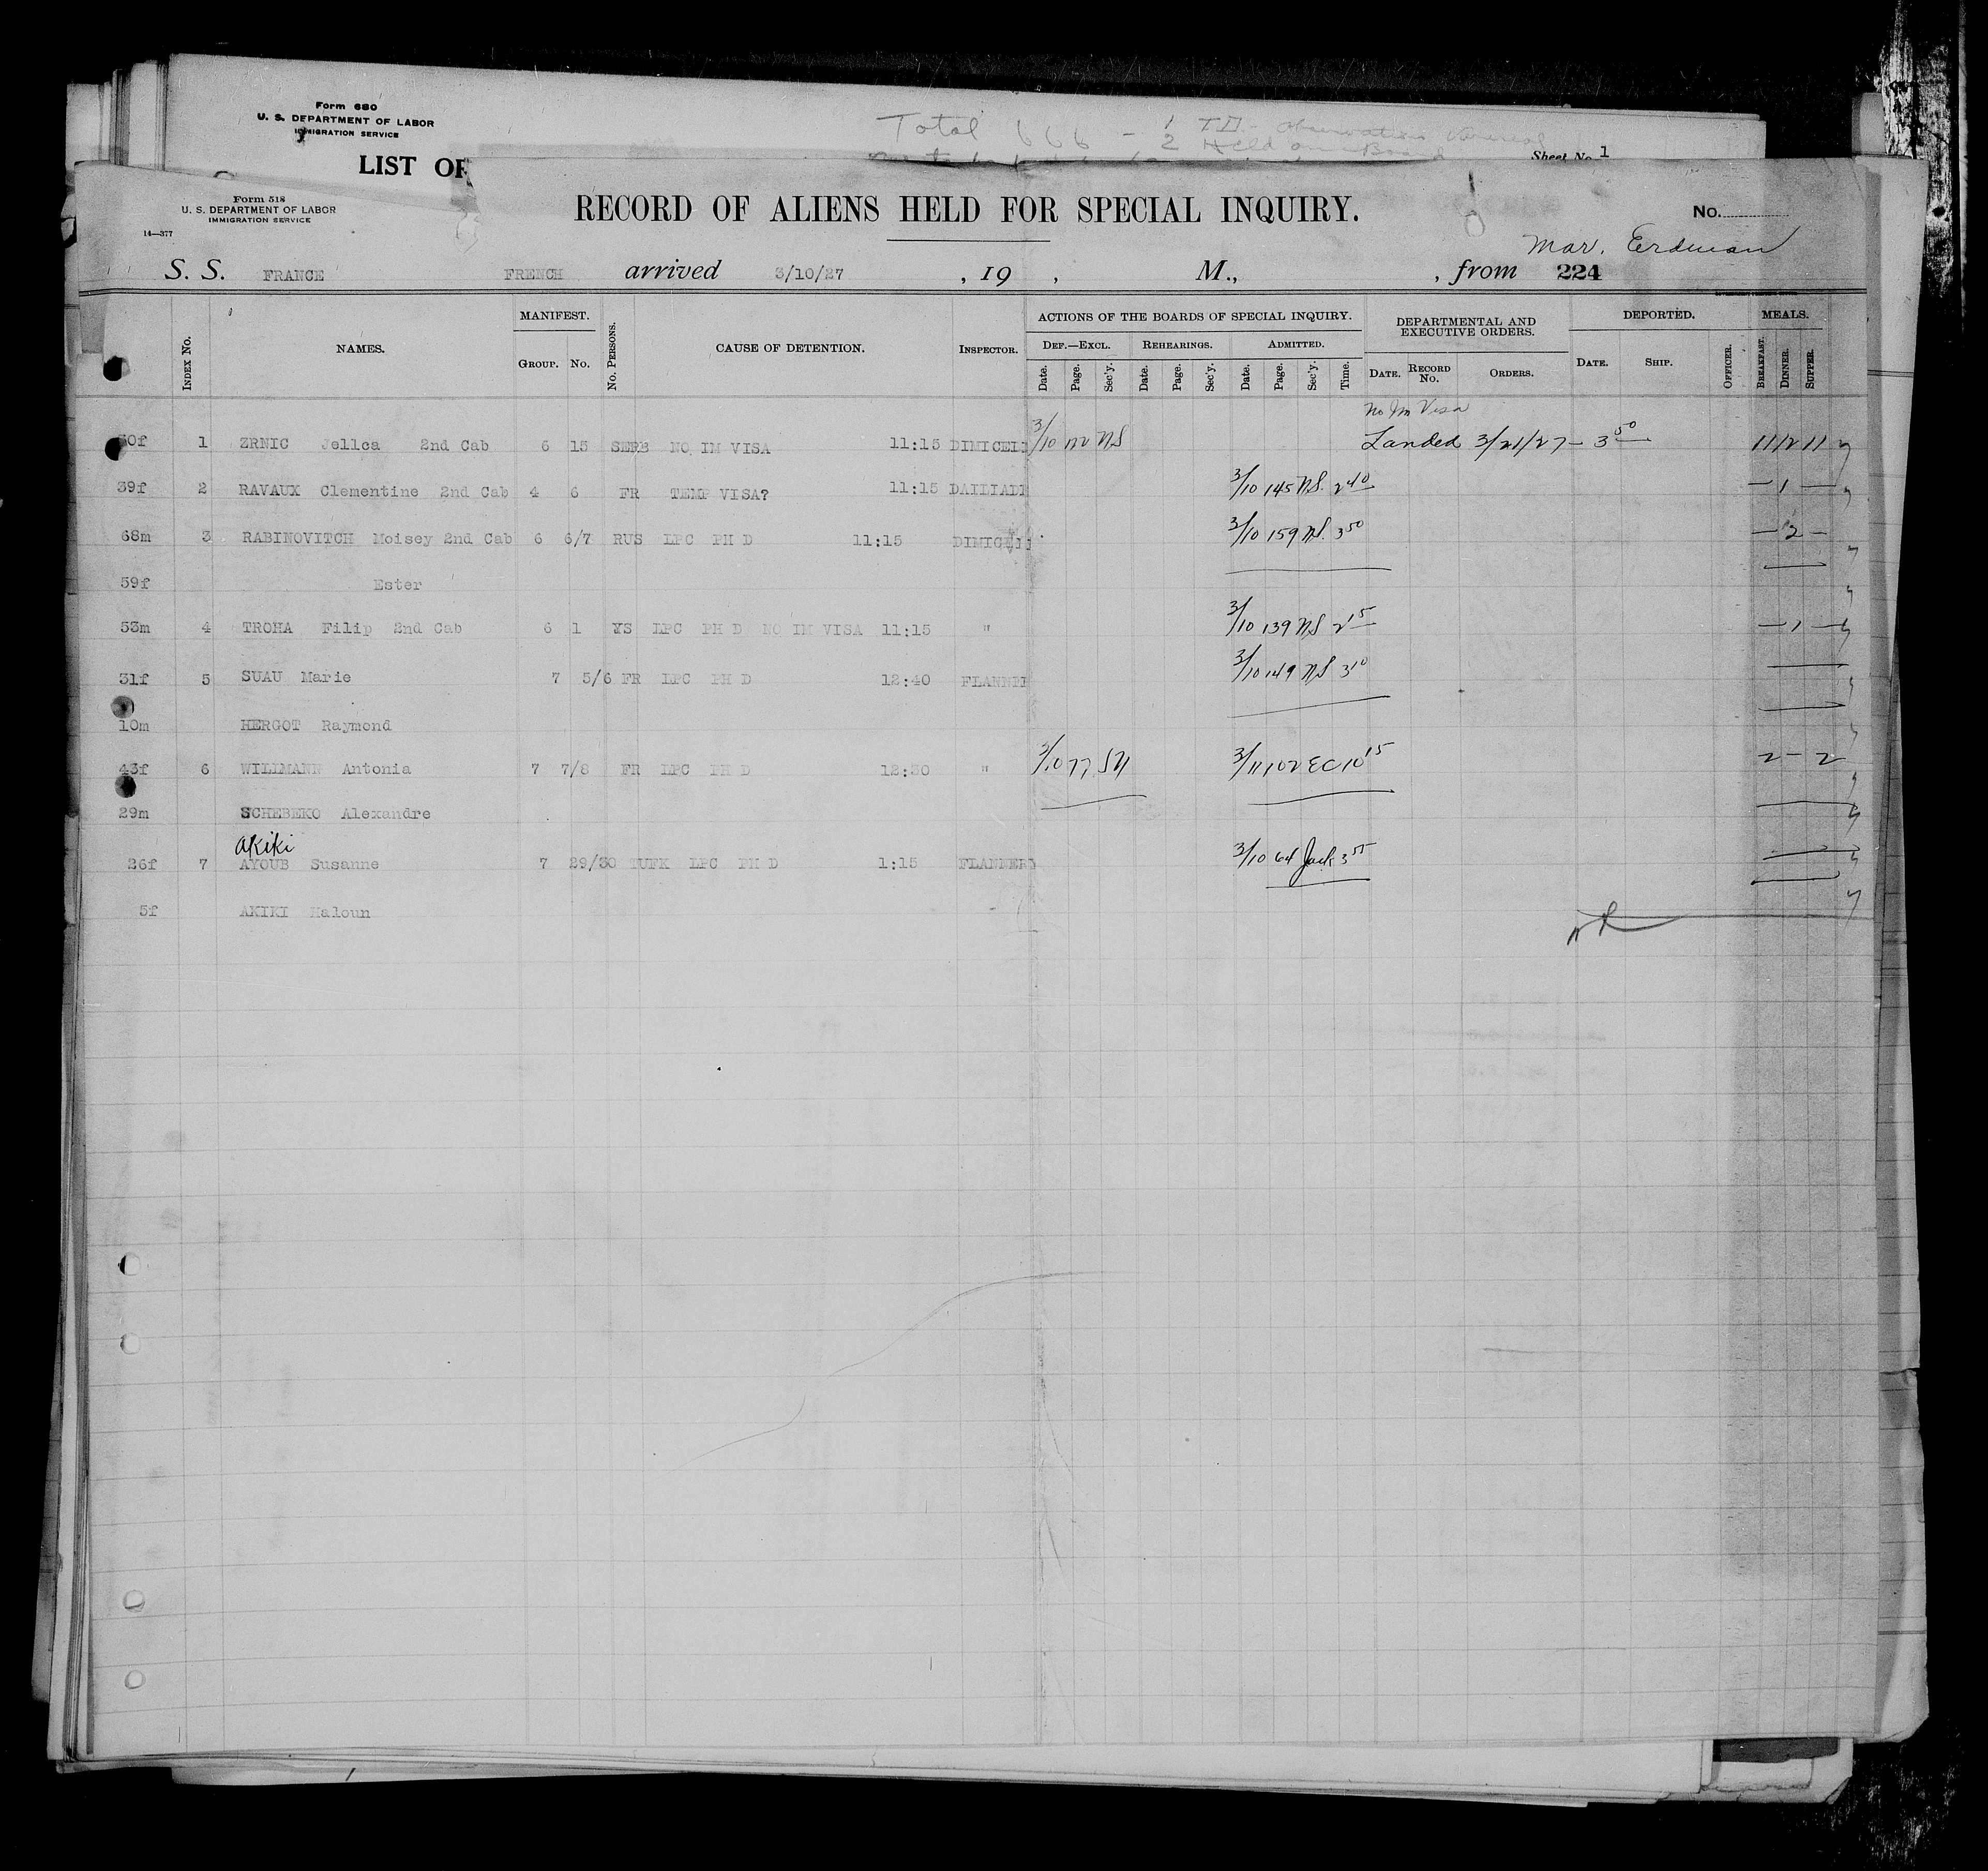 Form 680
U. S. DEPARTMENT OF LABOR
IMMIGRATION SERVICE
Total 666 - 1 T.D. Observation
2 Held on Board
LIST OF
Sheet No. 1
Form 518
U. S. DEPARTMENT OF LABOR
IMMIGRATION SERVICE
14—377
RECORD OF ALIENS HELD FOR SPECIAL INQUIRY.
No.
Mar. Erdman
S. S. FRANCE FRENCH arrived 3/10/27 , 19 , M., , from 224
Index No. NAMES. MANIFEST. Group. No. No. Persons. CAUSE OF DETENTION. Inspector. ACTIONS OF THE BOARDS OF SPECIAL INQUIRY. DEPARTMENTAL AND EXECUTIVE ORDERS. DEPORTED. MEALS.
Def.—Excl. Rehearings. Admitted.
Date. Page. Sec'y. Date. Page. Sec'y. Date. Page. Sec'y. Time. Date. Record No. Orders. Date. Ship. Officer. Breakfast. Dinner. Supper.
No Im Visa
30f 1 ZRNIC Jellca 2nd Cab 6 15 SERB NO IM VISA 11:15 DIMICELI 3/10 NS Landed 3/21/27 – 3 50 11 12 11
39f 2 RAVAUX Clementine 2nd Cab 4 6 FR TEMP VISA? 11:15 3/10 145 NS. 2 40 — 1 —
68m 3 RABINOVITCH Moisey 2nd Cab 6 6/7 RUS LPC PH D 11:15 3/10 159 NS. 3 50 — 2 —
59f Ester
53m 4 TROHA Filip 2nd Cab 6 1 YS LPC PH D NO IM VISA 11:15 " 3/10 139 NS 2 15 — 1 —
31f 5 SUAU Marie 7 5/6 FR LPC PH D 12:40 3/10 149 NS 3 10
10m HERGOT Raymond
43f 6 WILLMANN Antonia 7 7/8 FR LPC PH D 12:30 " 3/10 77 3/11 102 EC 10 15 2 — 2
29m SCHEBEKO Alexandre
Akiki
26f 7 AYOUB Susanne 7 29/30 TURK LPC PH D 1:15 FLANNERY 3/10 64 Jack 3 55
5f AKIKI Maloun